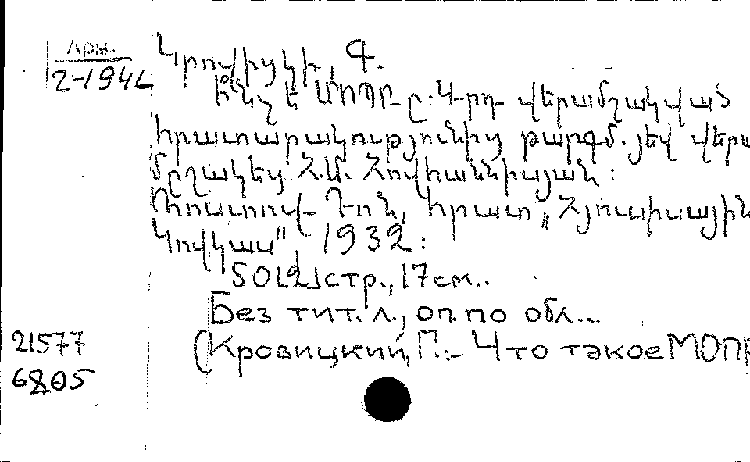 Арм.
2-1946
Կրովիցկի, Գ.
Ի՞նչ է ՄՈՊՐ-ը: 4-րդ վերամշակված
հրատարակությունից թարգմ. յեվ վերա
մըշակեց Հ.Մ. Հովհաննիսյան:
Ռոստով-Դոն, հրատ. „Հյուսիսային
Կովկաս" 1932:
50[2]стр., 17см..
Без тит. л., оп. по обл...
(Кровицкий, Г.- Что такое МОПР
21577
6805